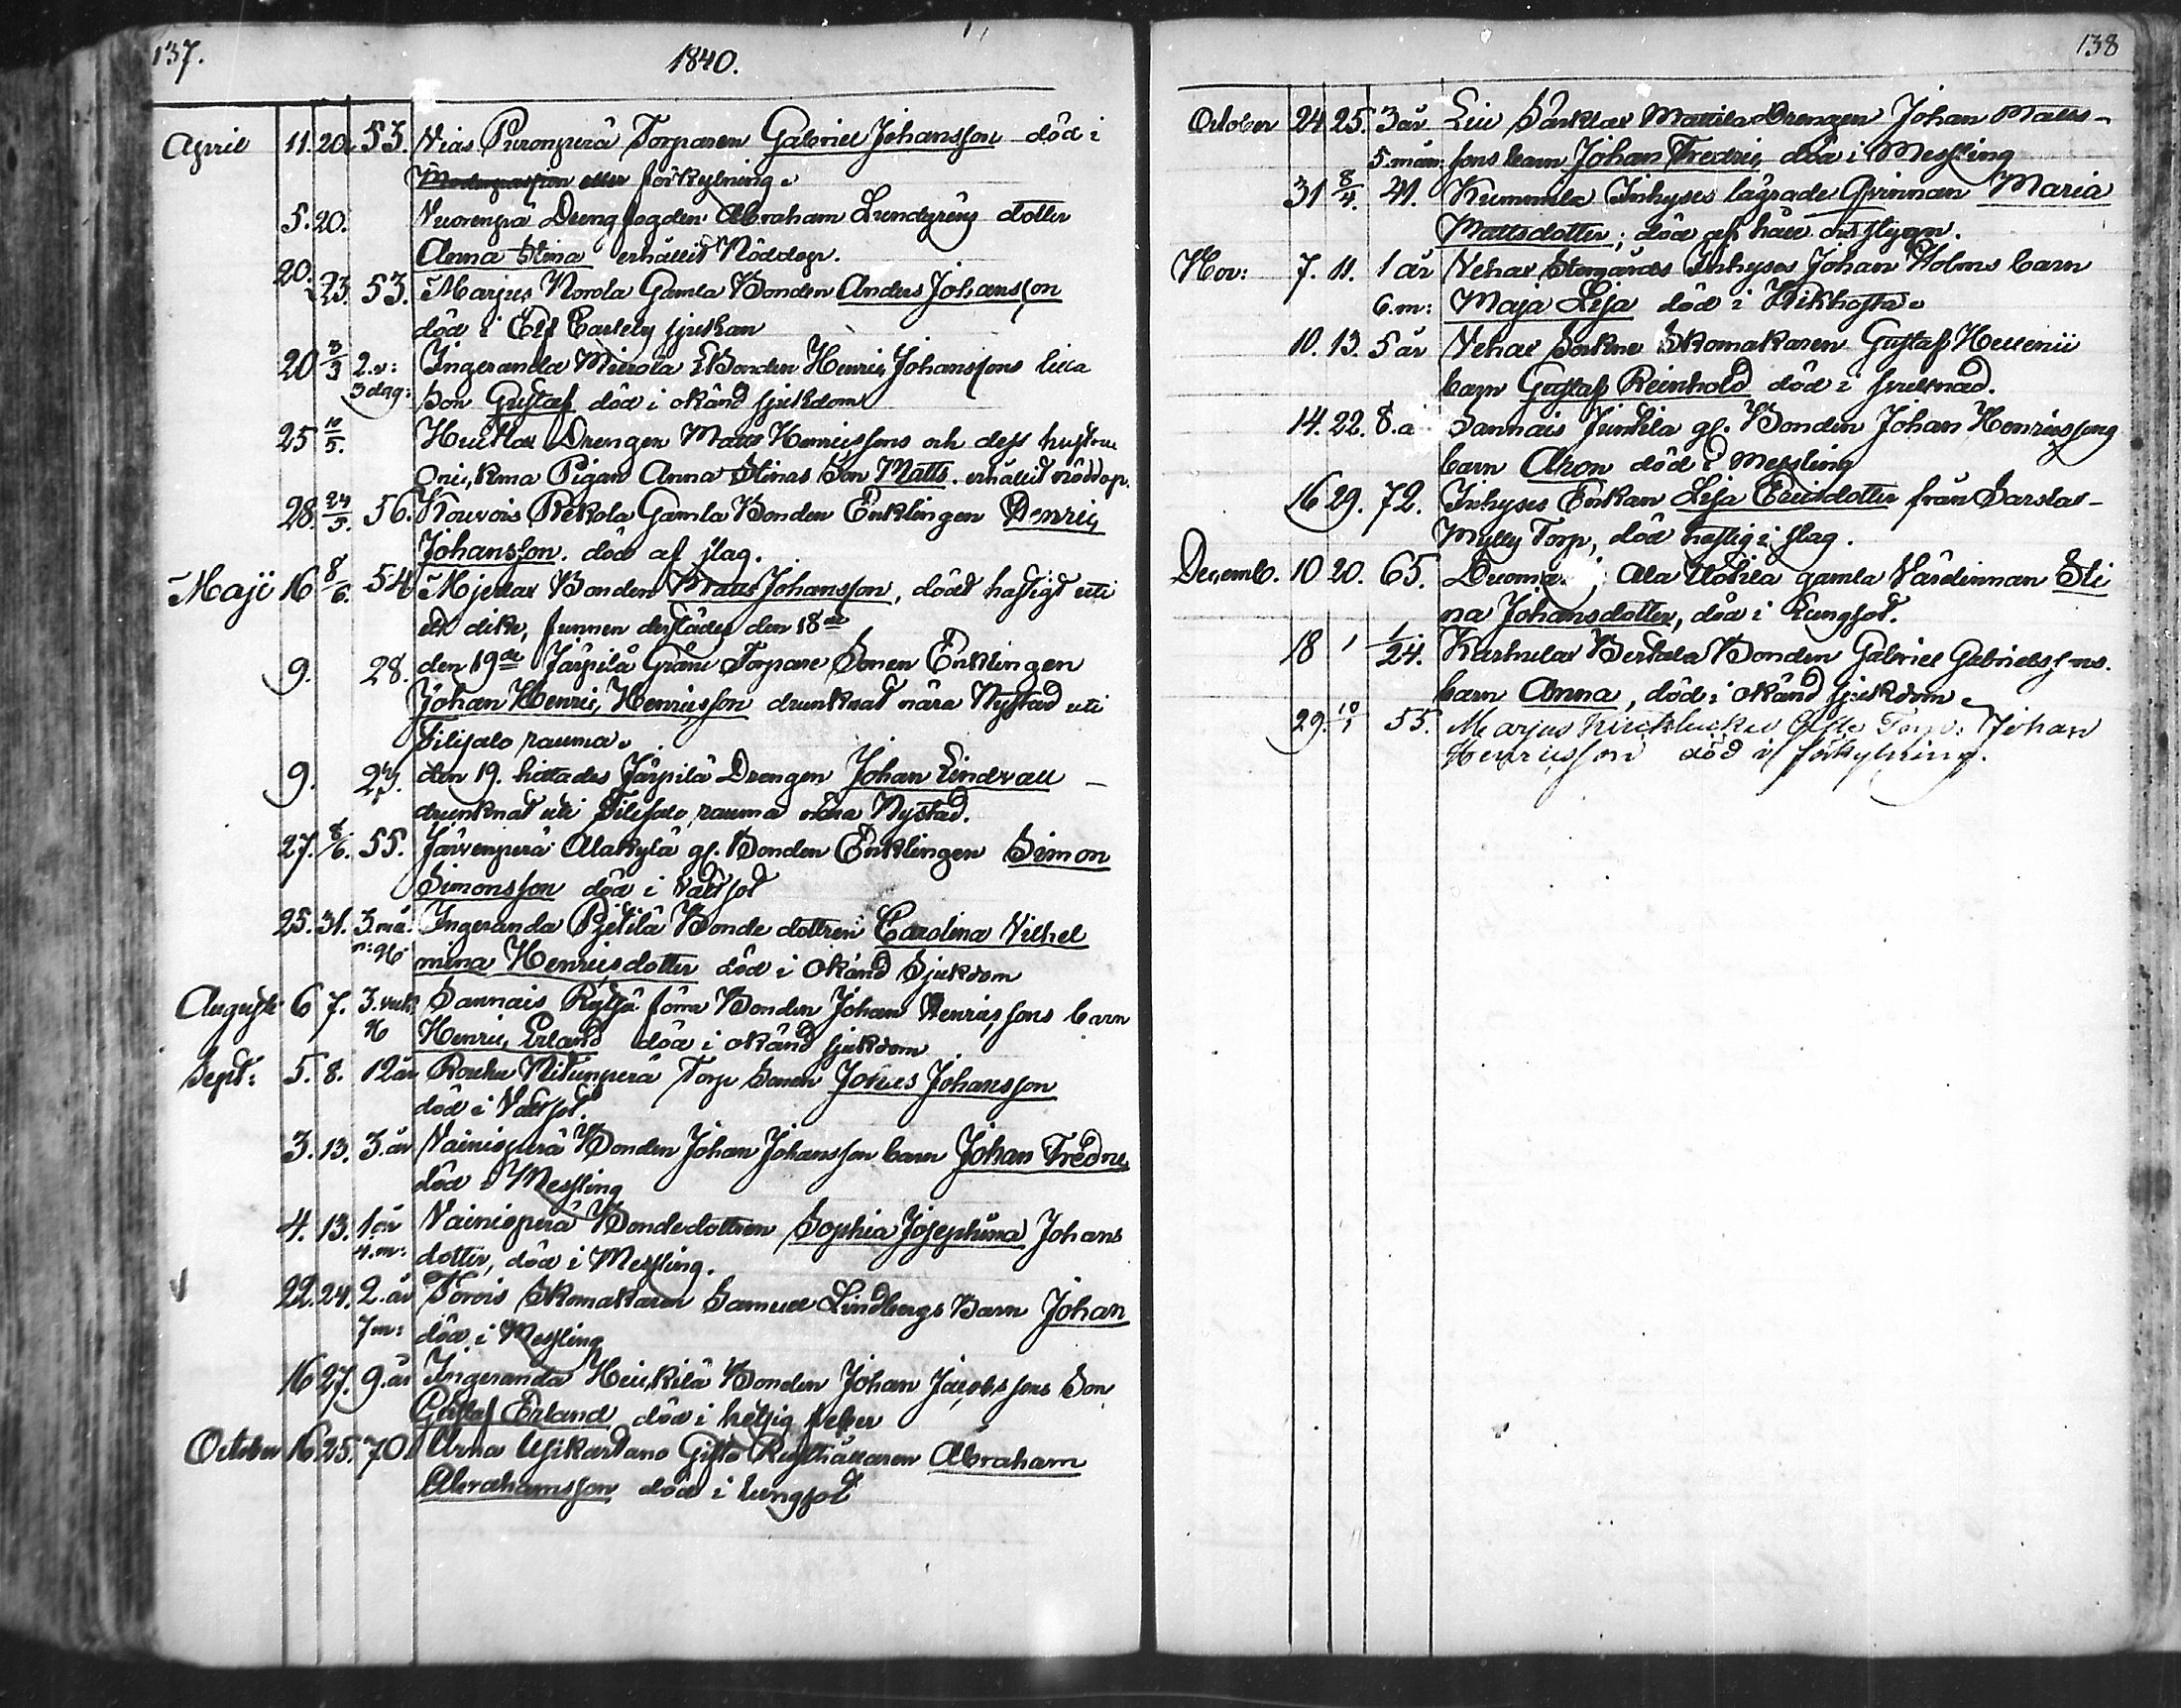 137.
1840.
April 11. 20. 53. Nias Puronperä Torparen Gabriel Johansson död i
förkylning.
5. 20. Drengfogden Abraham Lundgrens dotter
Anna Stina erhållit Nöddop.
20. 23. 53. Marjus Norola Gamla Bonden Anders Johansson
död i
20 3/3 2.v: Ingeranda Mierola Bonden Henric Johanssons lilla
3 dag: Son Gustaf död i okänd sjukdom
25 10/5. Drengen Matts Henricssons och dess hustru
Pigan Anna Stinas Son Matts. erhållit nöddop.
28. 24/5. 56. Kouvois Rekola Gamla Bonden Enklingen Henric
Johansson. död af slag.
Maji 16 8/6. 54 Bonden Matts Johansson, dödt hastigt uti
ett dike, funnen derstädes den 18de
9. 28. den 19de Järpilä Gräni Torpare Sonen Enklingen
Johan Henric Henricsson drunknat nära Nystad uti
rauma.
9. den 19. hittades Järpilä Drengen Johan Lindvall
drunknat uti rauma nära Nystad.
27. 8/6. 55. Järvenperä Alakylä gl. Bonden Enklingen Simon
Simonsson död i Vattsot
25. 31. 3.må. Ingeranda Pjetilä Bonde dottren Carolina Vilhel
mina Henricsdotter död i Okänd Sjukdom
Augusti 6 7. 3. vek. Sannais förra Bonden Johan Henricssons barn
Henric Erland död i okänd sjukdom
Sept: 5. 8. 12 år Torp Sonen Johan Johansson
död i Vattsot.
3. 13. 3. år Vainisperä Bonden Johan Johansson barn Johan Fredric
död i Messling
4. 13. 1 år Vainisperä Bondedottren Sophia Josephina Johans
4. m: dotter, död i Messling.
22. 24. 2. år Torois Skomakaren Samuel Lindbergs Barn Johan
7 m: död i Messling
16 27. 9. år Ingeranda Heickilä Bonden Johan Jacobssons Son
Gustaf Erland död i hetsig feber
October 16 25. 70. Arna Ylikartano Gifte Rusthållaren Abraham
Abrahamsson död i lungsot
138
October 24 25. 3 år Mattila Drengen Johan Matts-
5. mån: sons barn Johan Fredric död i Messling
31 8/4. 41. Kummila Inhyses lägrade Qvinnan Maria
Mattsdotter; död af håll och stygn.
Nov: 7. 11. 1 år Vehas Inhyses Johan Holms barn
6. m: Maja Lisa död i Kikhosta.
10. 13. 5 år Vehas Skomakaren Gustaf Hellenii
barn Gustaf Reinhold död i
14. 22. 8. å Sannais Junkila gl. Bonden Johan Henricssons
barn Aron död i Messling
16 29. 72. Inhyses Enkan Lisa Ericsdotter från
Mylly Torp, död hastig i slag.
Decemb. 10 20. 65. Ala gamla Värdinnan Sti
na Johansdotter, död i Lungsot.
18 1 1/24. Karhulas Bertala Bonden Gabriel Gabrielssons.
barn Anna, död i okänd sjukdom.
29. 10/1 55. Marjus Torp: Johan
Henricsson död i förkylning.